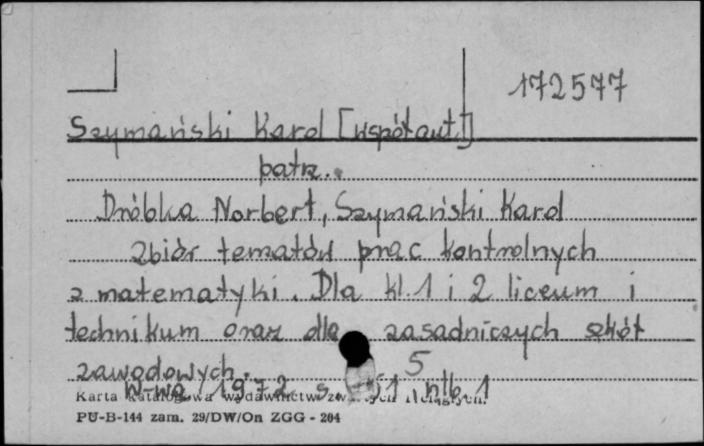 172577
Szymański Karol [współaut.]
patrz.
Dróbka Norbert, Szymański Karol
Zbiór tematów prac kontrolnych
z matematyki. Dla kl. 1 i 2 liceum i
technikum oraz dla zasadniczych szkół
zawodowych.
5
W-wa 1972 s. 51 nlb 1
Karta katalogowa wydawnictw
PU-B-144 zam. 29/DW/On ZGG - 204